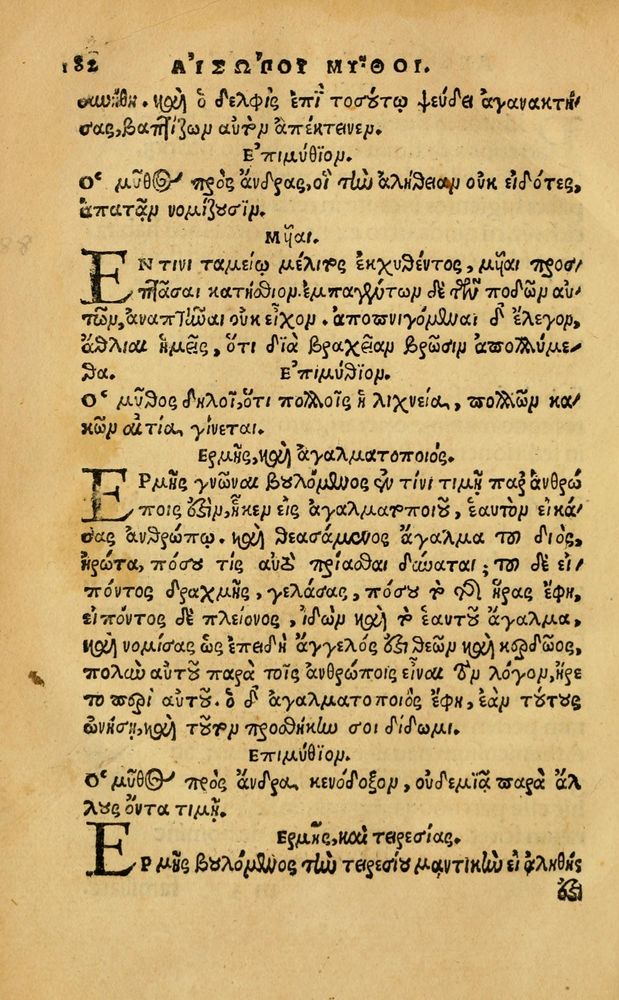 182 ΑΙΣΩΠΟΥ ΜΥΘΟΙ.
συνήθη. καὶ ὁ δελφὶς ἐπὶ τοσούτῳ ψεύδει ἀγανακτή-
σας, βαπτίζων αὐτὸν ἀπέκτεινεν.
Ἐπιμύθιον.
Ὁ μῦθος πρὸς ἄνδρας, οἳ τὴν ἀλήθειαν οὐκ εἰδότες,
ἀπατᾷν νομίζουσιν.
Μυῖαι.
ΕΝ τινι ταμείῳ μέλιτος ἐκχυθέντος, μυῖαι προσ-
πτᾶσαι κατήσθιον. ἐμπαγέντων δὲ τῶν ποδῶν αὐ-
τῶν, ἀναπτῆναι οὐκ εἶχον. ἀποπνιγόμεναι δ' ἔλεγον,
ἄθλιαι ἡμεῖς, ὅτι διὰ βραχεῖαν βρῶσιν ἀπολλύμε-
θα. Ἐπιμύθιον.
Ὁ μῦθος δηλοῖ, ὅτι πολλοῖς ἡ λιχνεία, πολλῶν κα-
κῶν αἰτία γίνεται.
Ἑρμῆς, καὶ ἀγαλματοποιός.
ΕΡμῆς γνῶναι βουλόμενος ἐν τίνι τιμῇ παρ' ἀνθρώ
ποις ἐστὶν, ἧκεν εἰς ἀγαλματοποιοῦ, ἑαυτὸν εἰκά-
σας ἀνθρώπῳ. καὶ θεασάμενος ἄγαλμα τοῦ διὸς,
ἠρώτα, πόσου τίς αὐτὸ πρίασθαι δύναται; τοῦ δὲ εἰ-
πόντος δραχμῆς, γελάσας, πόσου τὸ τῆς ἥρας ἔφη,
εἰπόντος δὲ πλείονος, ἰδὼν καὶ τὸ ἑαυτοῦ ἄγαλμα,
καὶ νομίσας ὡς ἐπειδὴ ἄγγελός ἐστι θεῶν καὶ κερδῶος,
πολὺν αὐτοῦ παρὰ τοῖς ἀνθρώποις εἶναι τὸν λόγον, ἤρε
το περὶ αὐτοῦ. ὁ δ' ἀγαλματοποιὸς ἔφη, ἐὰν τούτους
ὠνήσῃ, καὶ τοῦτον προσθήκην σοι δίδωμι.
Ἐπιμύθιον.
Ὁ μῦθος πρὸς ἄνδρα κενόδοξον, οὐδεμιᾷ παρὰ ἄλ
λοις ὄντα τιμῇ.
Ἑρμῆς, καὶ τειρεσίας.
ΕΡμῆς βουλόμενος τὴν τειρεσίου μαντικὴν εἰ ἀληθής
ἐστι